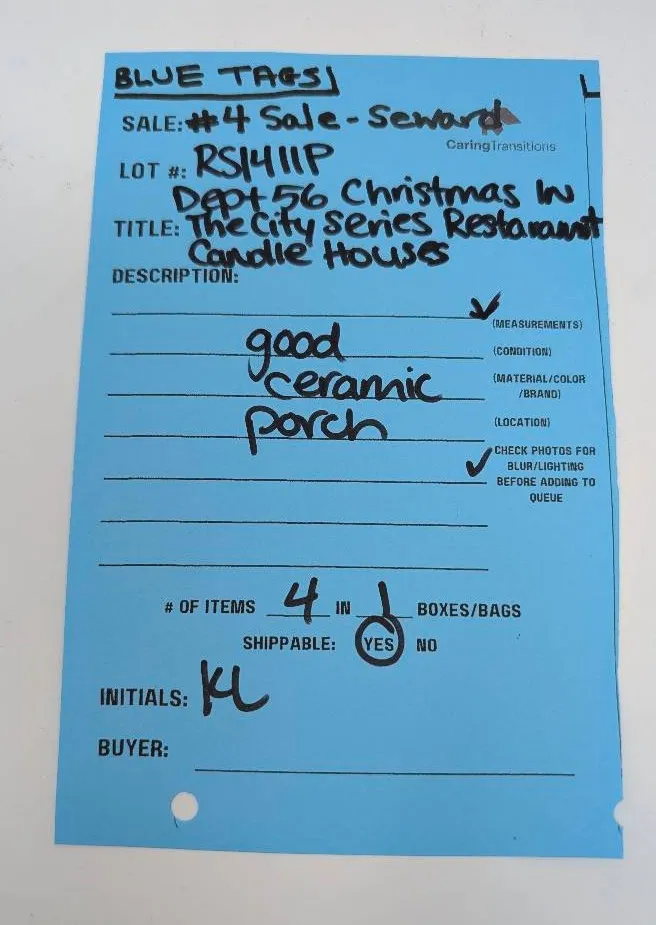 BLUE TAGS
SALE: #4 Sale - Seward
CaringTransitions
LOT #: RS1411P
Dept 56 Christmas In
TITLE: The City Series Restaraunt
Candle Houses
DESCRIPTION:
(MEASUREMENTS)
good (CONDITION)
ceramic (MATERIAL/COLOR
/BRAND)
porch (LOCATION)
CHECK PHOTOS FOR
BLUR/LIGHTING
BEFORE ADDING TO
QUEUE
# OF ITEMS 4 IN 1 BOXES/BAGS
SHIPPABLE: YES NO
INITIALS: KL
BUYER: